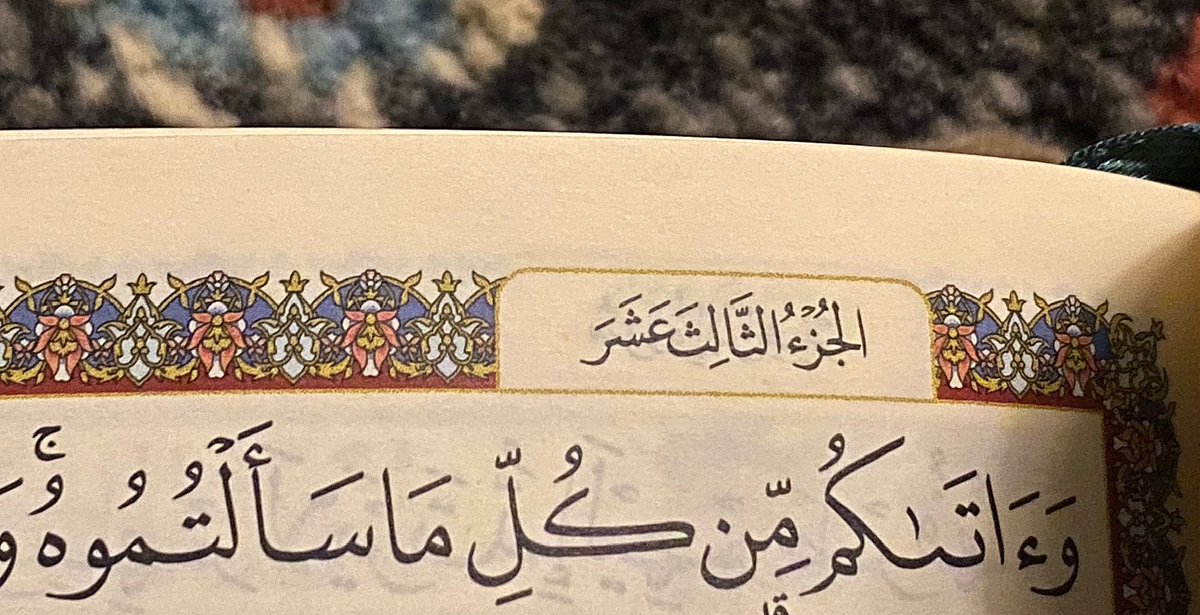 الجُزْءُ الثَّالِثَ عَشَرَ
وَءَاتَىٰكُم مِّن كُلِّ مَا سَأَلْتُمُوهُ ۚ